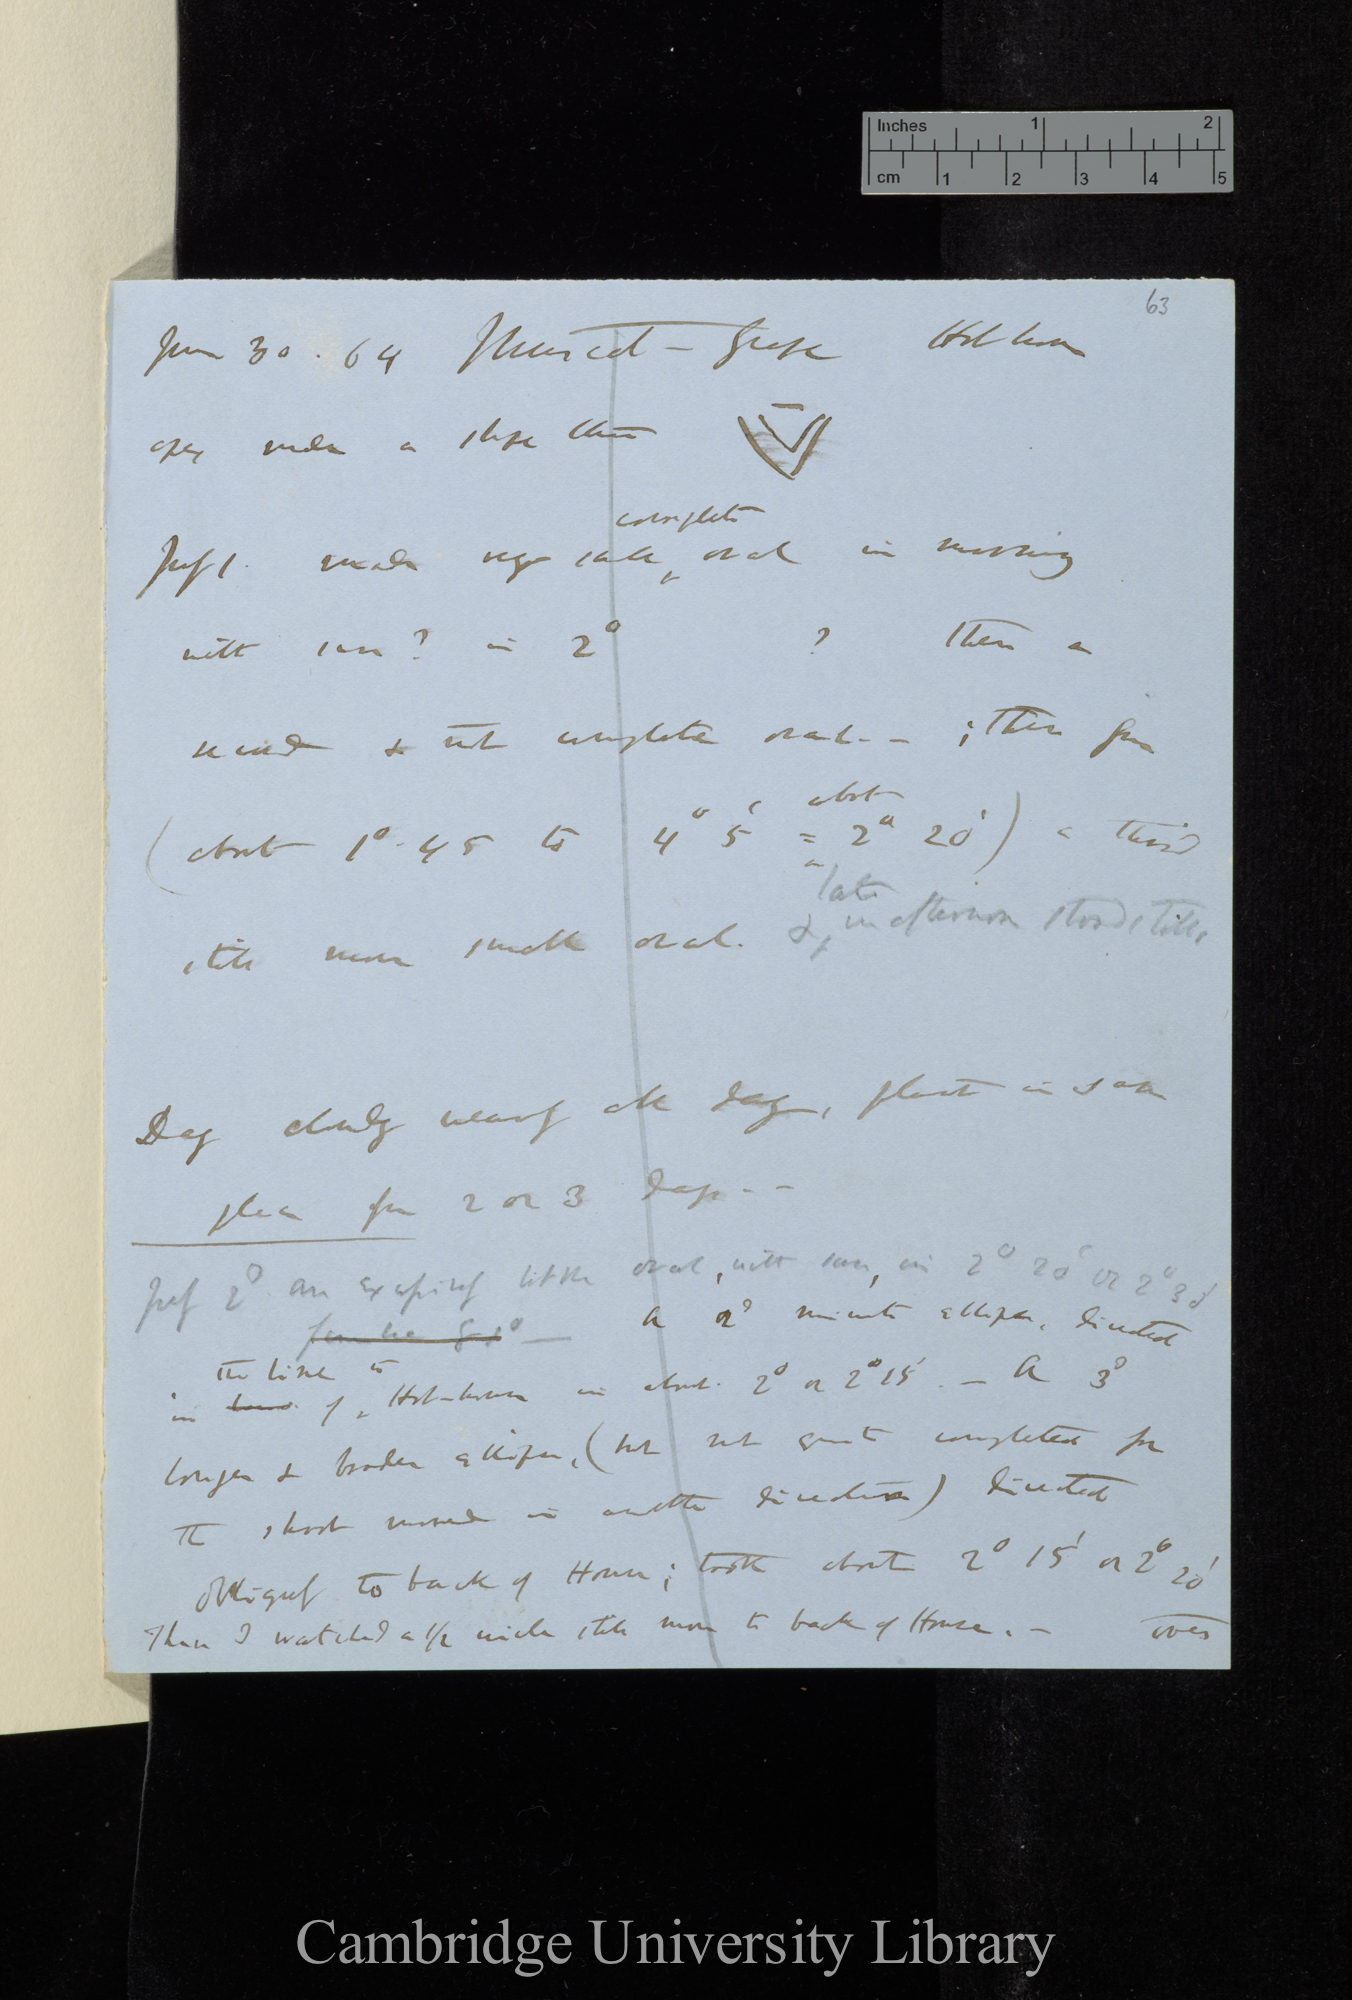 Inches 1 2
cm 1 2 3 4 5
63
June 30. 64 Muscat-Grape Hot house
apex made a shape thus
complete
July 1. made rage oval in morning
with sun? in 2° ? then a
second & not complete oval. — ; then from
about
(about 1°. 45 to 4° 5' = 2° 20') a third
late
still more small oval. & in afternoon stood still.
Day cloudy nearly all day, plant in same
place for 2 or 3 days. —
July 2d. an excessively little oval, with sun, in 2° 20' or 2° 30'
A 2d minute ellipse, directed
the line to
in of Hot-house in about 2° or 2° 15'. — A 3d
longer & broader ellipse, (but not quite completed for
the shoot moved in another direction) directed
obliquely to back of House; took about 2° 15' or 2° 20'
Then I watched a 1/2 circle still more to back of House. — over
Cambridge University Library